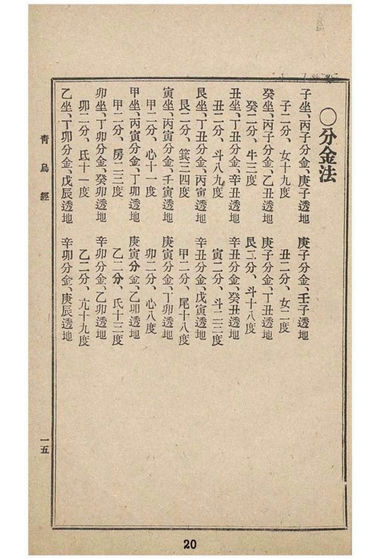 ○分金法
子坐、丙子分金、庚子透地　庚子分金、壬子透地
子二分、女十九度　丑二分、女二度
癸坐、丙子分金、乙丑透地　庚子分金、丁丑透地
癸二分、牛三度　艮二分、斗十八度
丑坐、丁丑分金、辛丑透地　辛丑分金、癸丑透地
丑二分、斗八九度　寅二分、斗二三度
艮坐、丁丑分金、丙寅透地　辛丑分金、戊寅透地
艮二分、箕三四度　甲二分、尾十八度
寅坐、丙寅分金、壬寅透地　庚寅分金、丁卯透地
甲二分、心十一度　卯二分、心八度
甲坐、丙寅分金、丁卯透地　庚寅分金、乙卯透地
甲二分、房二三度　乙二分、氐十三度
卯坐、丁卯分金、癸卯透地　辛卯分金、乙卯透地
卯二分、氐十一度　乙二分、亢十九度
乙坐、丁卯分金、戊辰透地　辛卯分金、庚辰透地
靑烏經
一五
20